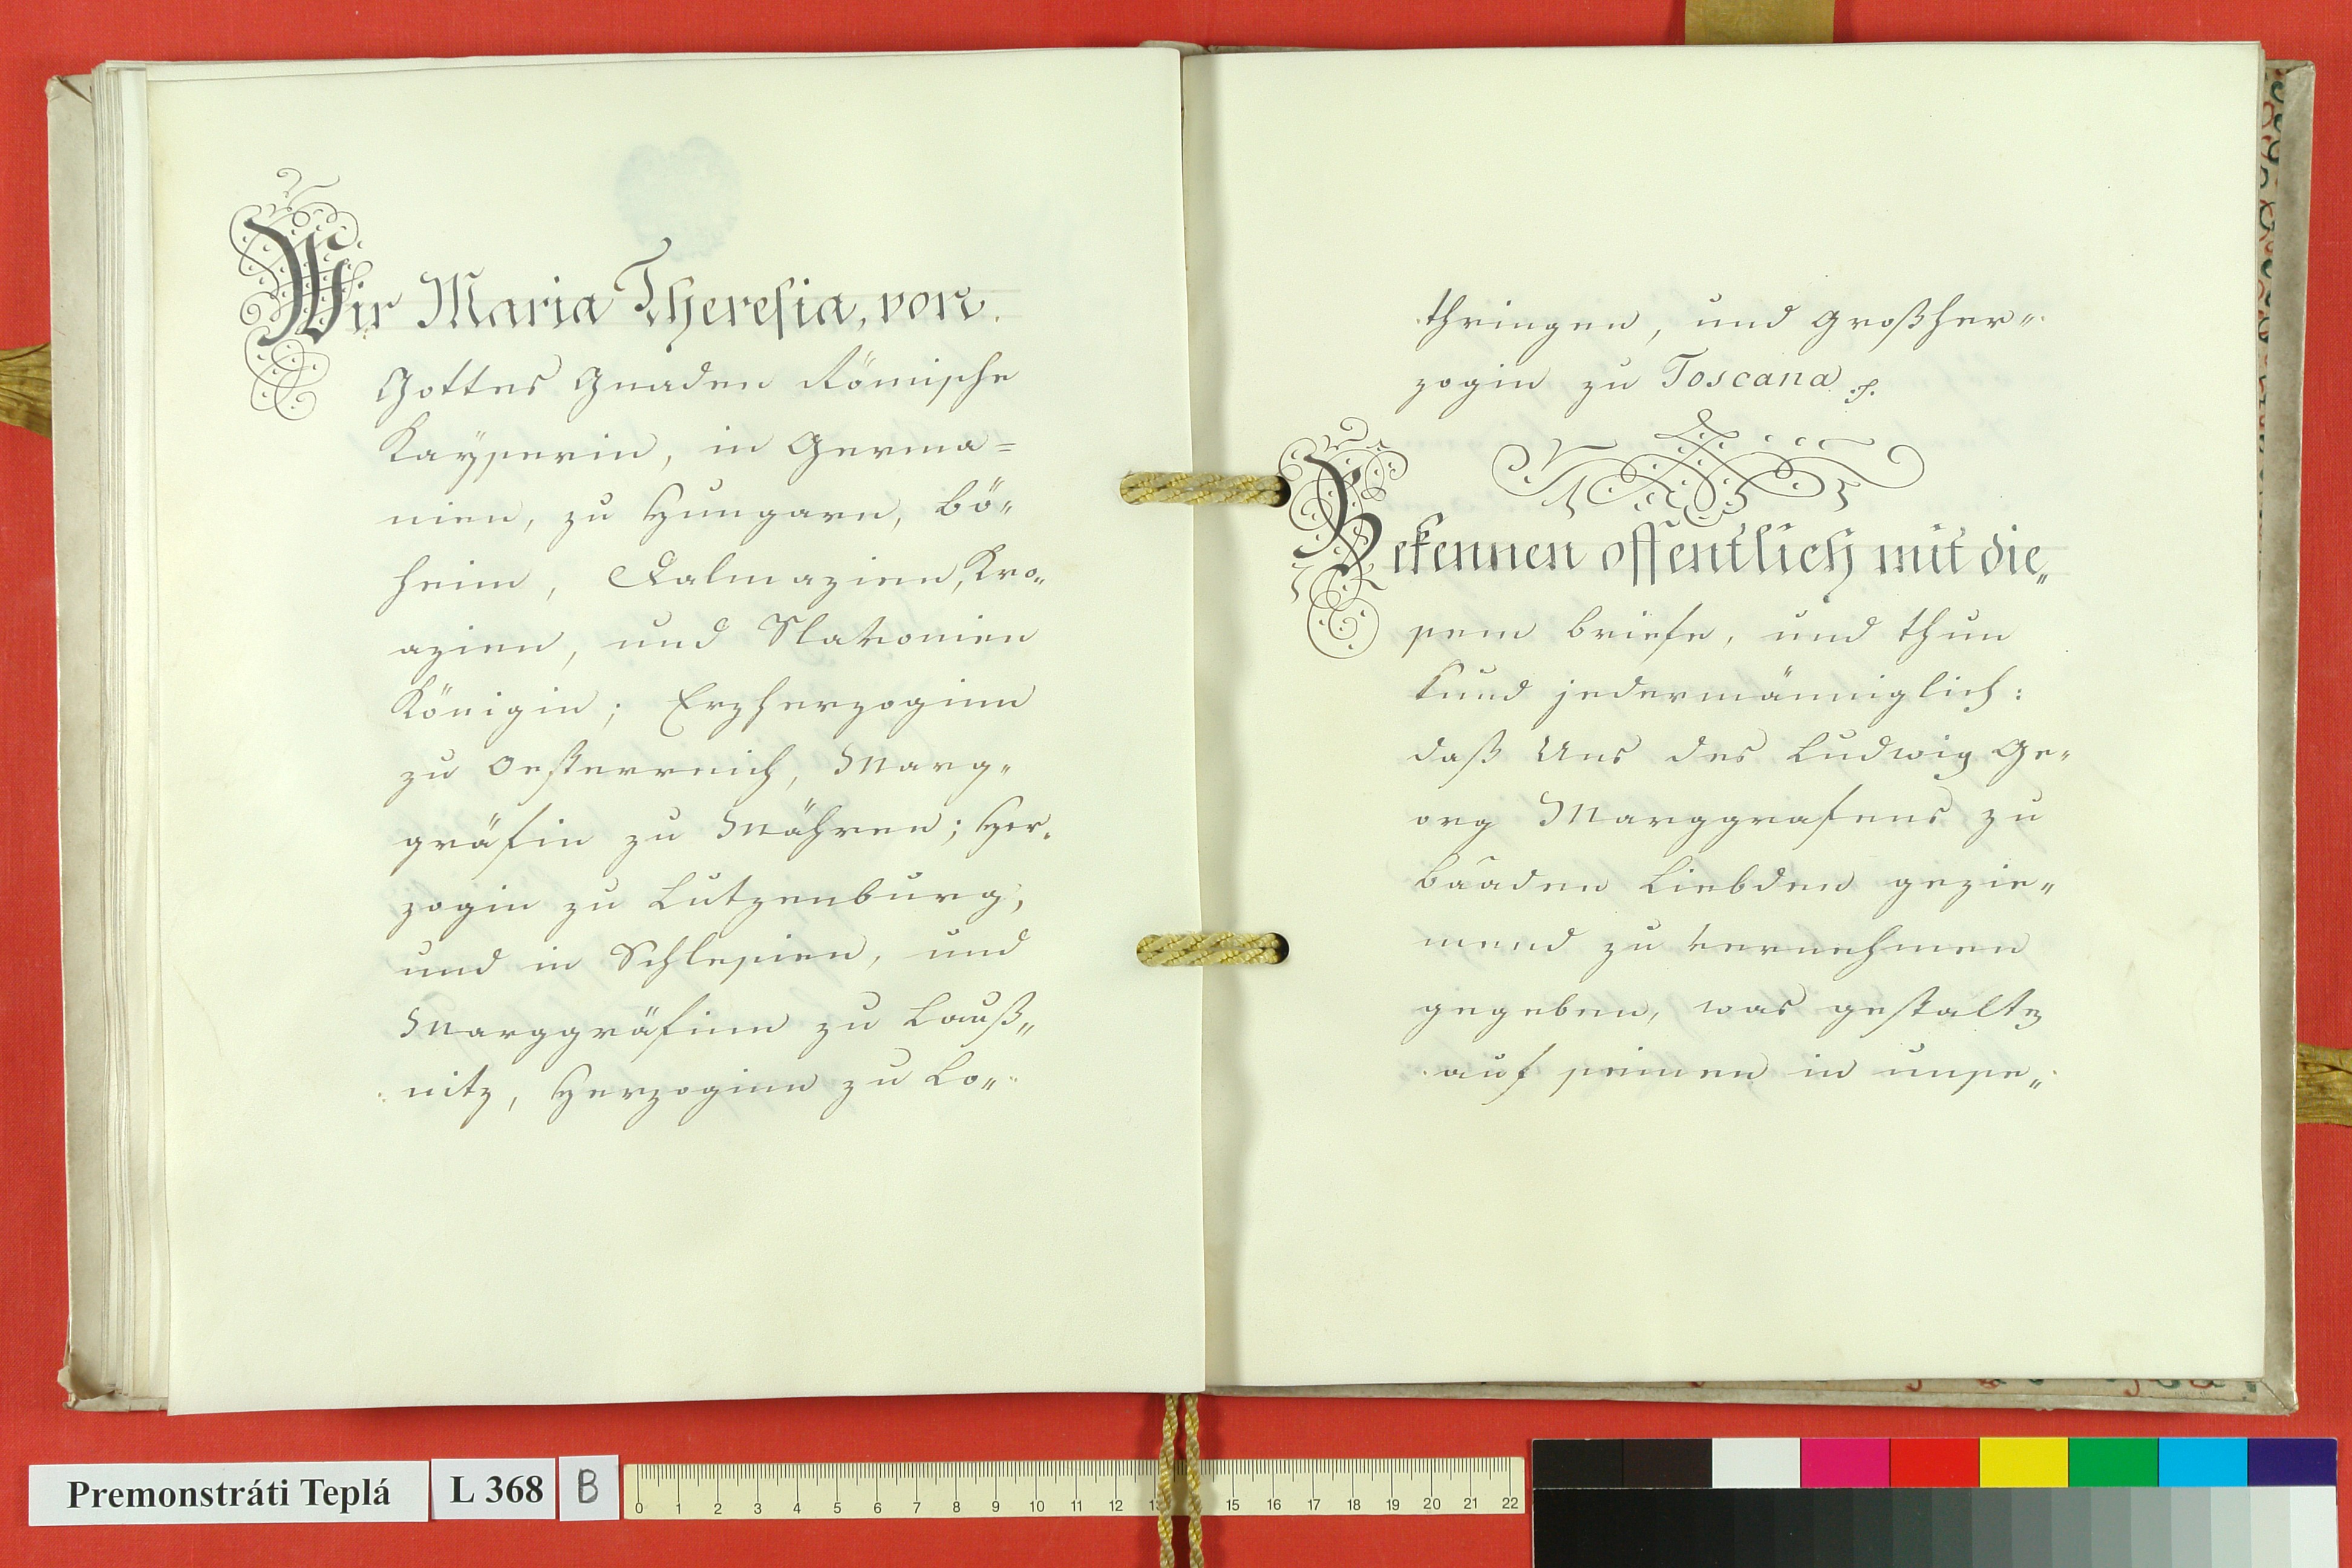 Wir Maria Theresia, von
Gottes Gnaden Römische
Kaÿserin, in Germa=
nien, zu Hungarn, Bö„
heim, Dalmazien, Kro„
azien, und Slavonien
Königin; Erzherzoginn
zu Oesterreich, Marg„
gräfin zu Mähren; Her„
zogin zu Lutzenburg,
und in Schlesien, und
Marggräfinn zu Lauß„
nitz, Herzoginn zu Lo„
thringen, und Großher„
zogin zu Toscana
Bekennen offentlich mit die„
sem Briefe, und thun
kund jedermänniglich:
daß Uns des Ludwig Ge„
org Marggrafens zu
Baaden Liebden gezie„
mend zu vernehmen
gegeben, was gestalten
auf seinen in unse„
Premonstráti Teplá
L 368
B
0 1 2 3 4 5 6 7 8 9 10 11 12 13 15 16 17 18 19 20 21 22